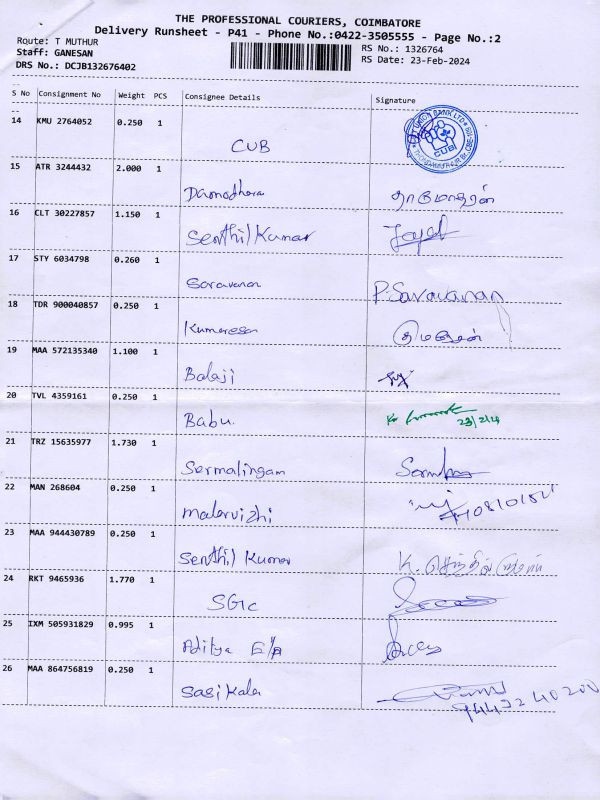 THE PROFESSIONAL COURIERS, COIMBATORE
Delivery Runsheet - P41 - Phone No.:0422-3505555 - Page No.:2
Route: T MUTHUR
Staff: GANESAN
DRS No.: DCJB132676402
RS No.: 1326764
RS Date: 23-Feb-2024
S No Consignment No Weight PCS Consignee Details Signature
14 KMU 2764052 0.250 1
CUB
UNION BANK LTD
CUB
15 ATR 3244432 2.000 1
Damodhara தாமோதரன்
16 CLT 30227857 1.150 1
Senthil Kumar
17 STY 6034798 0.260 1
Saravanan P. Saravanan
18 TDR 900040857 0.250 1
Kumaresan
19 MAA 572135340 1.100 1
Balaji
20 TVL 4359161 0.250 1
Babu. 23/2/24
21 TRZ 15635977 1.730 1
Sermalingam
22 MAN 268604 0.250 1
malarvizhi
23 MAA 944430789 0.250 1
Senthil Kumar K. செந்தில் குமார்
24 RKT 9465936 1.770 1
SGTC
25 IXM 505931829 0.995 1
Aditya
26 MAA 864756819 0.250 1
Sasikala
94432 40200